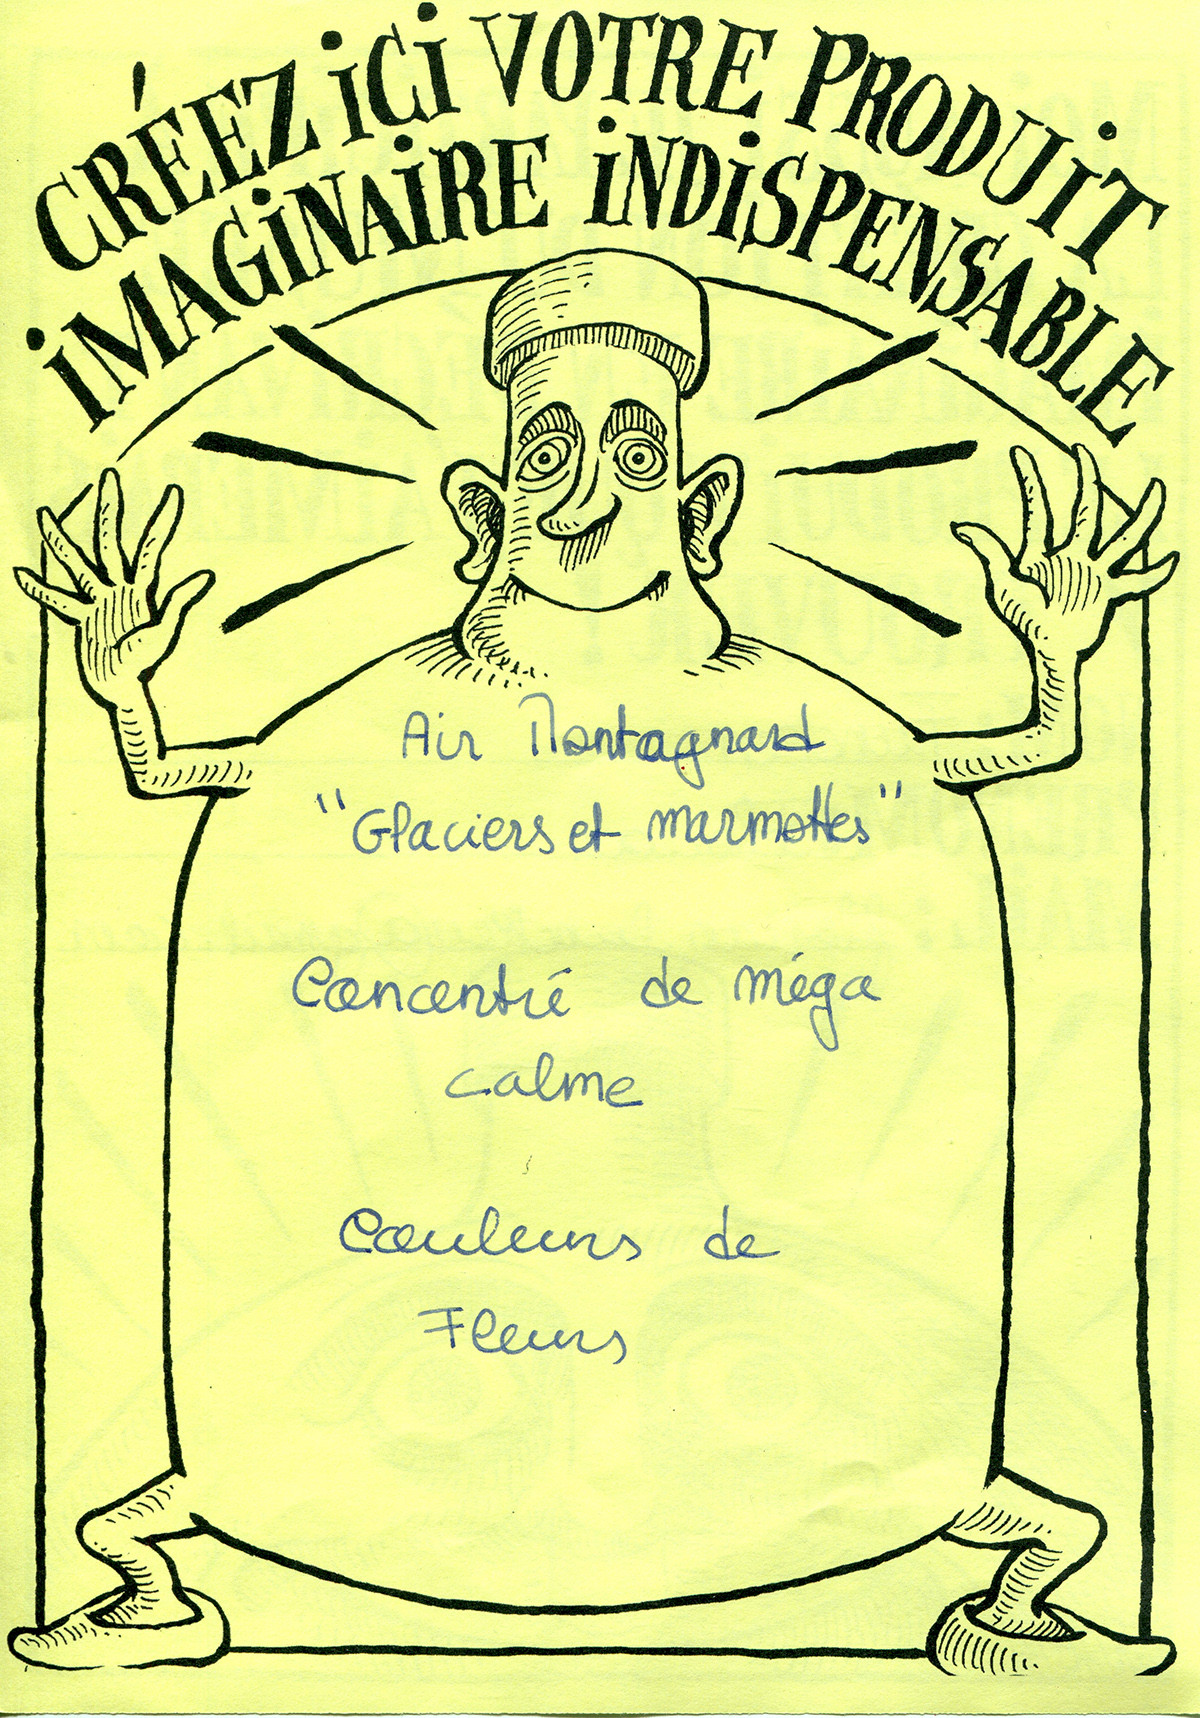 CRÉEZ iCi VOTRE PRODUiT
iMAGiNAiRE iNDiSPENSABLE
Air Montagnard
"Glaciers et marmottes"
Concentré de méga
calme
Couleurs de
Fleurs